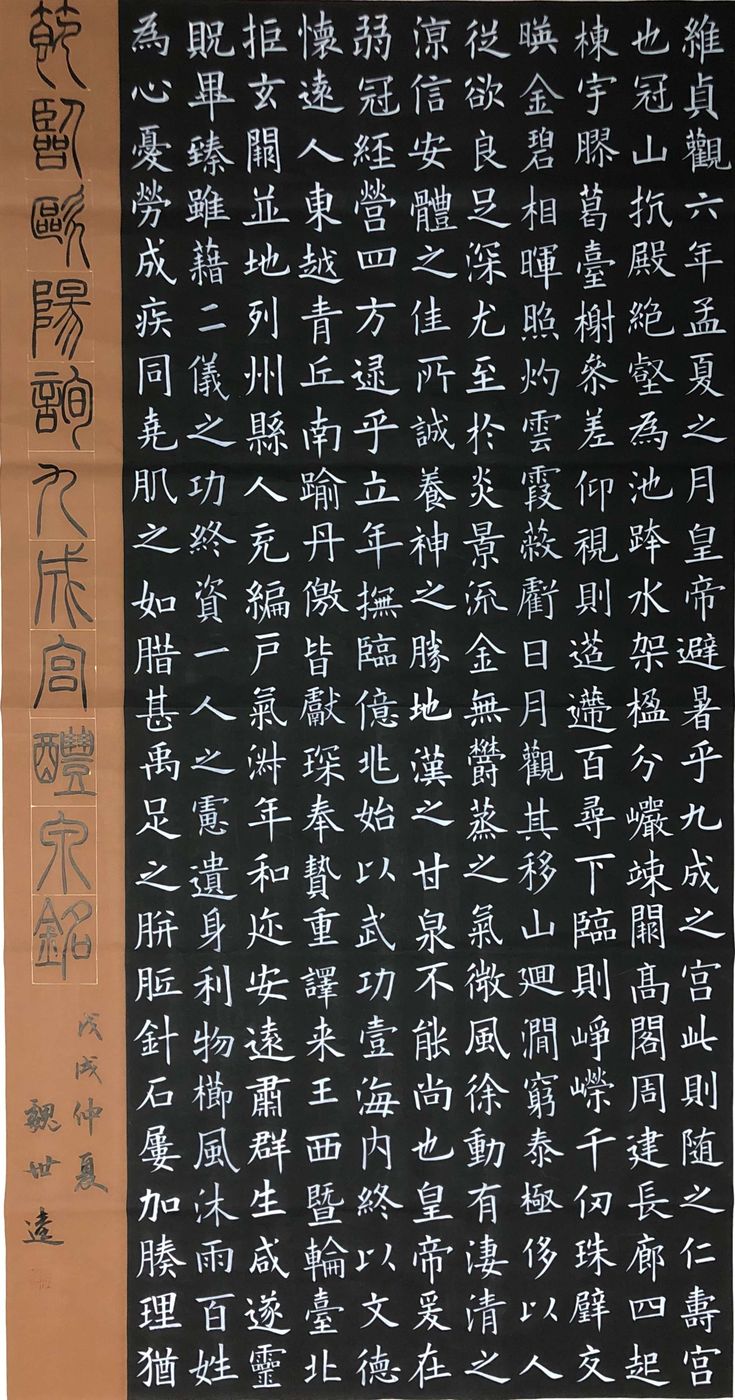 維貞觀六年孟夏之月皇帝避暑乎九成之宮此則随之仁壽宮
也冠山抗殿絶壑為池跨水架楹分巖竦闕高閣周建長廊四起
棟宇膠葛臺榭參差仰視則迢遰百尋下臨則崢嶸千仞珠壁交
暎金碧相暉照灼雲霞蔽虧日月觀其移山廻澗窮泰極侈以人
從欲良足深尤至於炎景流金無欝蒸之氣微風徐動有淒清之
涼信安體之佳所誠養神之勝地漢之甘泉不能尚也皇帝爰在
弱冠經營四方逮乎立年撫臨億兆始以武功壹海内終以文德
懷遠人東越青丘南踰丹儌皆獻琛奉贄重譯来王西暨輪臺北
拒玄闕並地列州縣人充編戸氣淑年和迩安遠肅群生咸遂靈
貺畢臻雖藉二儀之功終資一人之慮遺身利物櫛風沐雨百姓
為心憂勞成疾同堯肌之如腊甚禹足之胼胝針石屢加腠理猶
節臨歐陽詢九成宮醴泉銘
戊戌仲夏
魏世遠